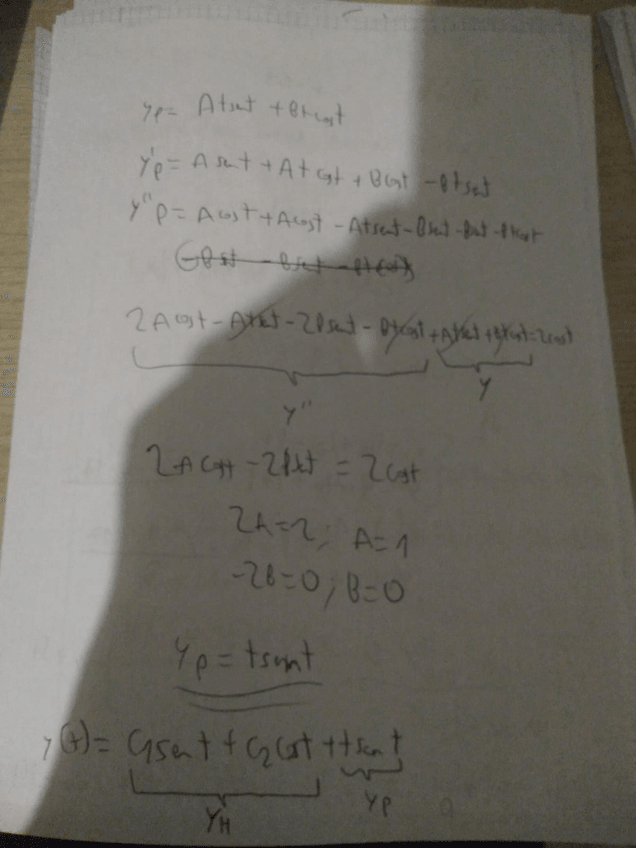 yp= Atsent + Btcost
y'p= Asent + Atcost + Bcost - Btsent
y''p= Acost + Acost - Atsent - Bsent - Bsent - Btcost
2Acost - Atsent - 2Bsent - Btcost + Atsent + Btcost = 2cost
y'' y
2Acost - 2Bsent = 2cost
2A=2; A=1
-2B=0; B=0
yp = tsent
y(t)= C1sent + C2cost + tsent
yH yp